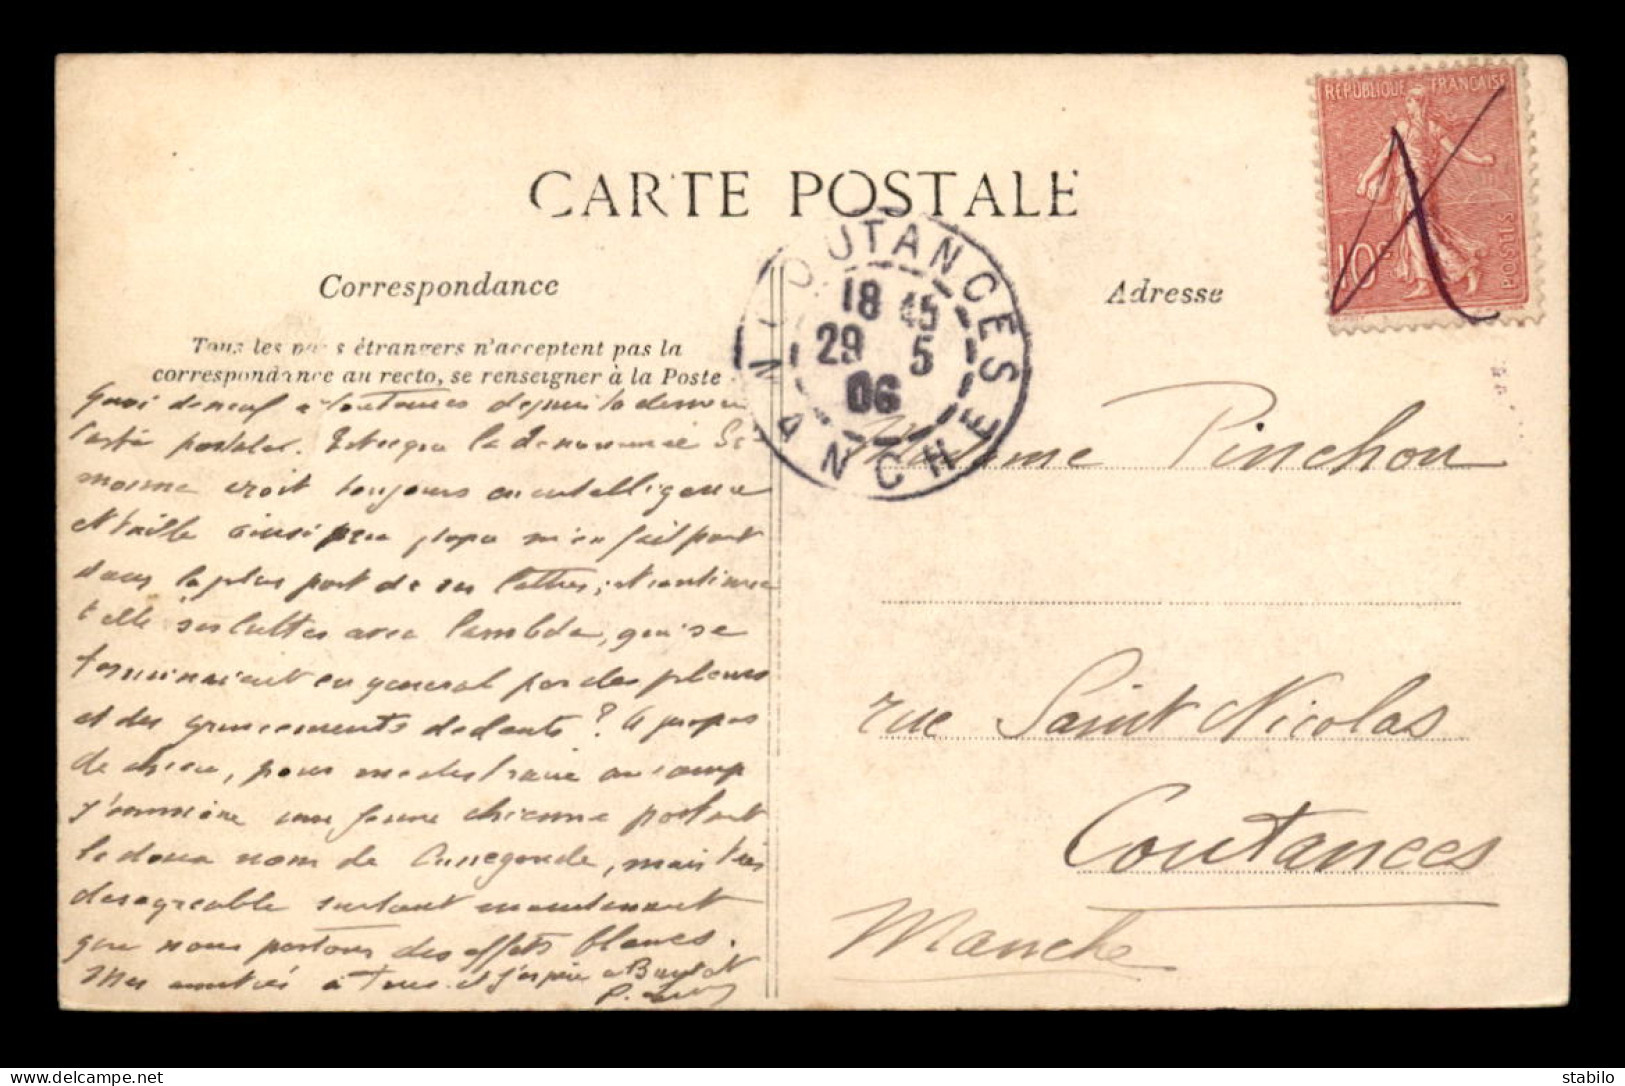 CARTE POSTALE
RÉPUBLIQUE FRANÇAISE
10c
POSTES
COUTANCES
18 45
29 5
06
MANCHE
Correspondance
Adresse
Tous les pays étrangers n'acceptent pas la
correspondance au recto, se renseigner à la Poste
Quoi de neuf à Coutances depuis ta dernière
carte postale.
croit toujours en intelligence
et taille ainsi que papa m'en fait part
dans la plus part de ses lettres; et continue
t'elle ses luttes avec Lambda, qui se
terminaient en général par des pleurs
et des grincements de dents? A propos
de chien, pour me distraire au camp
j'emmène une jeune chienne portant
le doux nom de Cunegonde, mais très
desagreable surtout maintenant
que nous portons des effets blancs.
Mes amitiés à tous et
P.
Madame Pinchon
rue Saint Nicolas
Coutances
Manche
stabilo